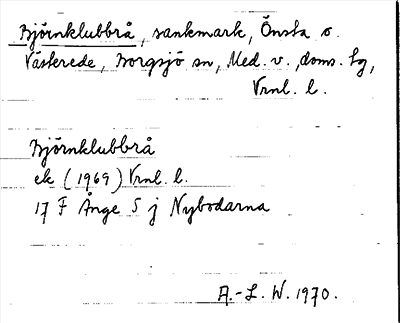 Björnklubbrå, sankmark, Önsta o.
Västerede, Borgsjö sn, Med. v., doms. tg,
Vrnl. l.
Björnklubbrå
ek (1969) Vrnl. l.
17 F Ånge S j Nybodarna
A.-L. W. 1970.